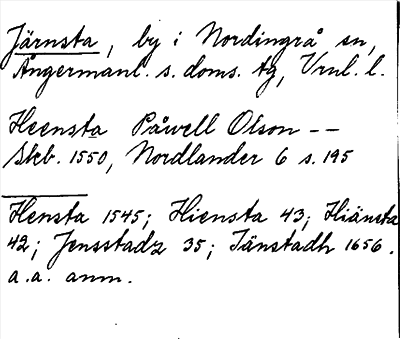 Järnsta, by i Nordingrå sn,
Ångermanl. s. doms. tg, Vrnl. l.
Heensta Påwell Olson --
Skb. 1550, Nordlander 6 s. 195
Hensta 1545; Hiensta 43; Hiänsta
42; Jensstadz 35; Jänstadh 1656.
a.a. anm.